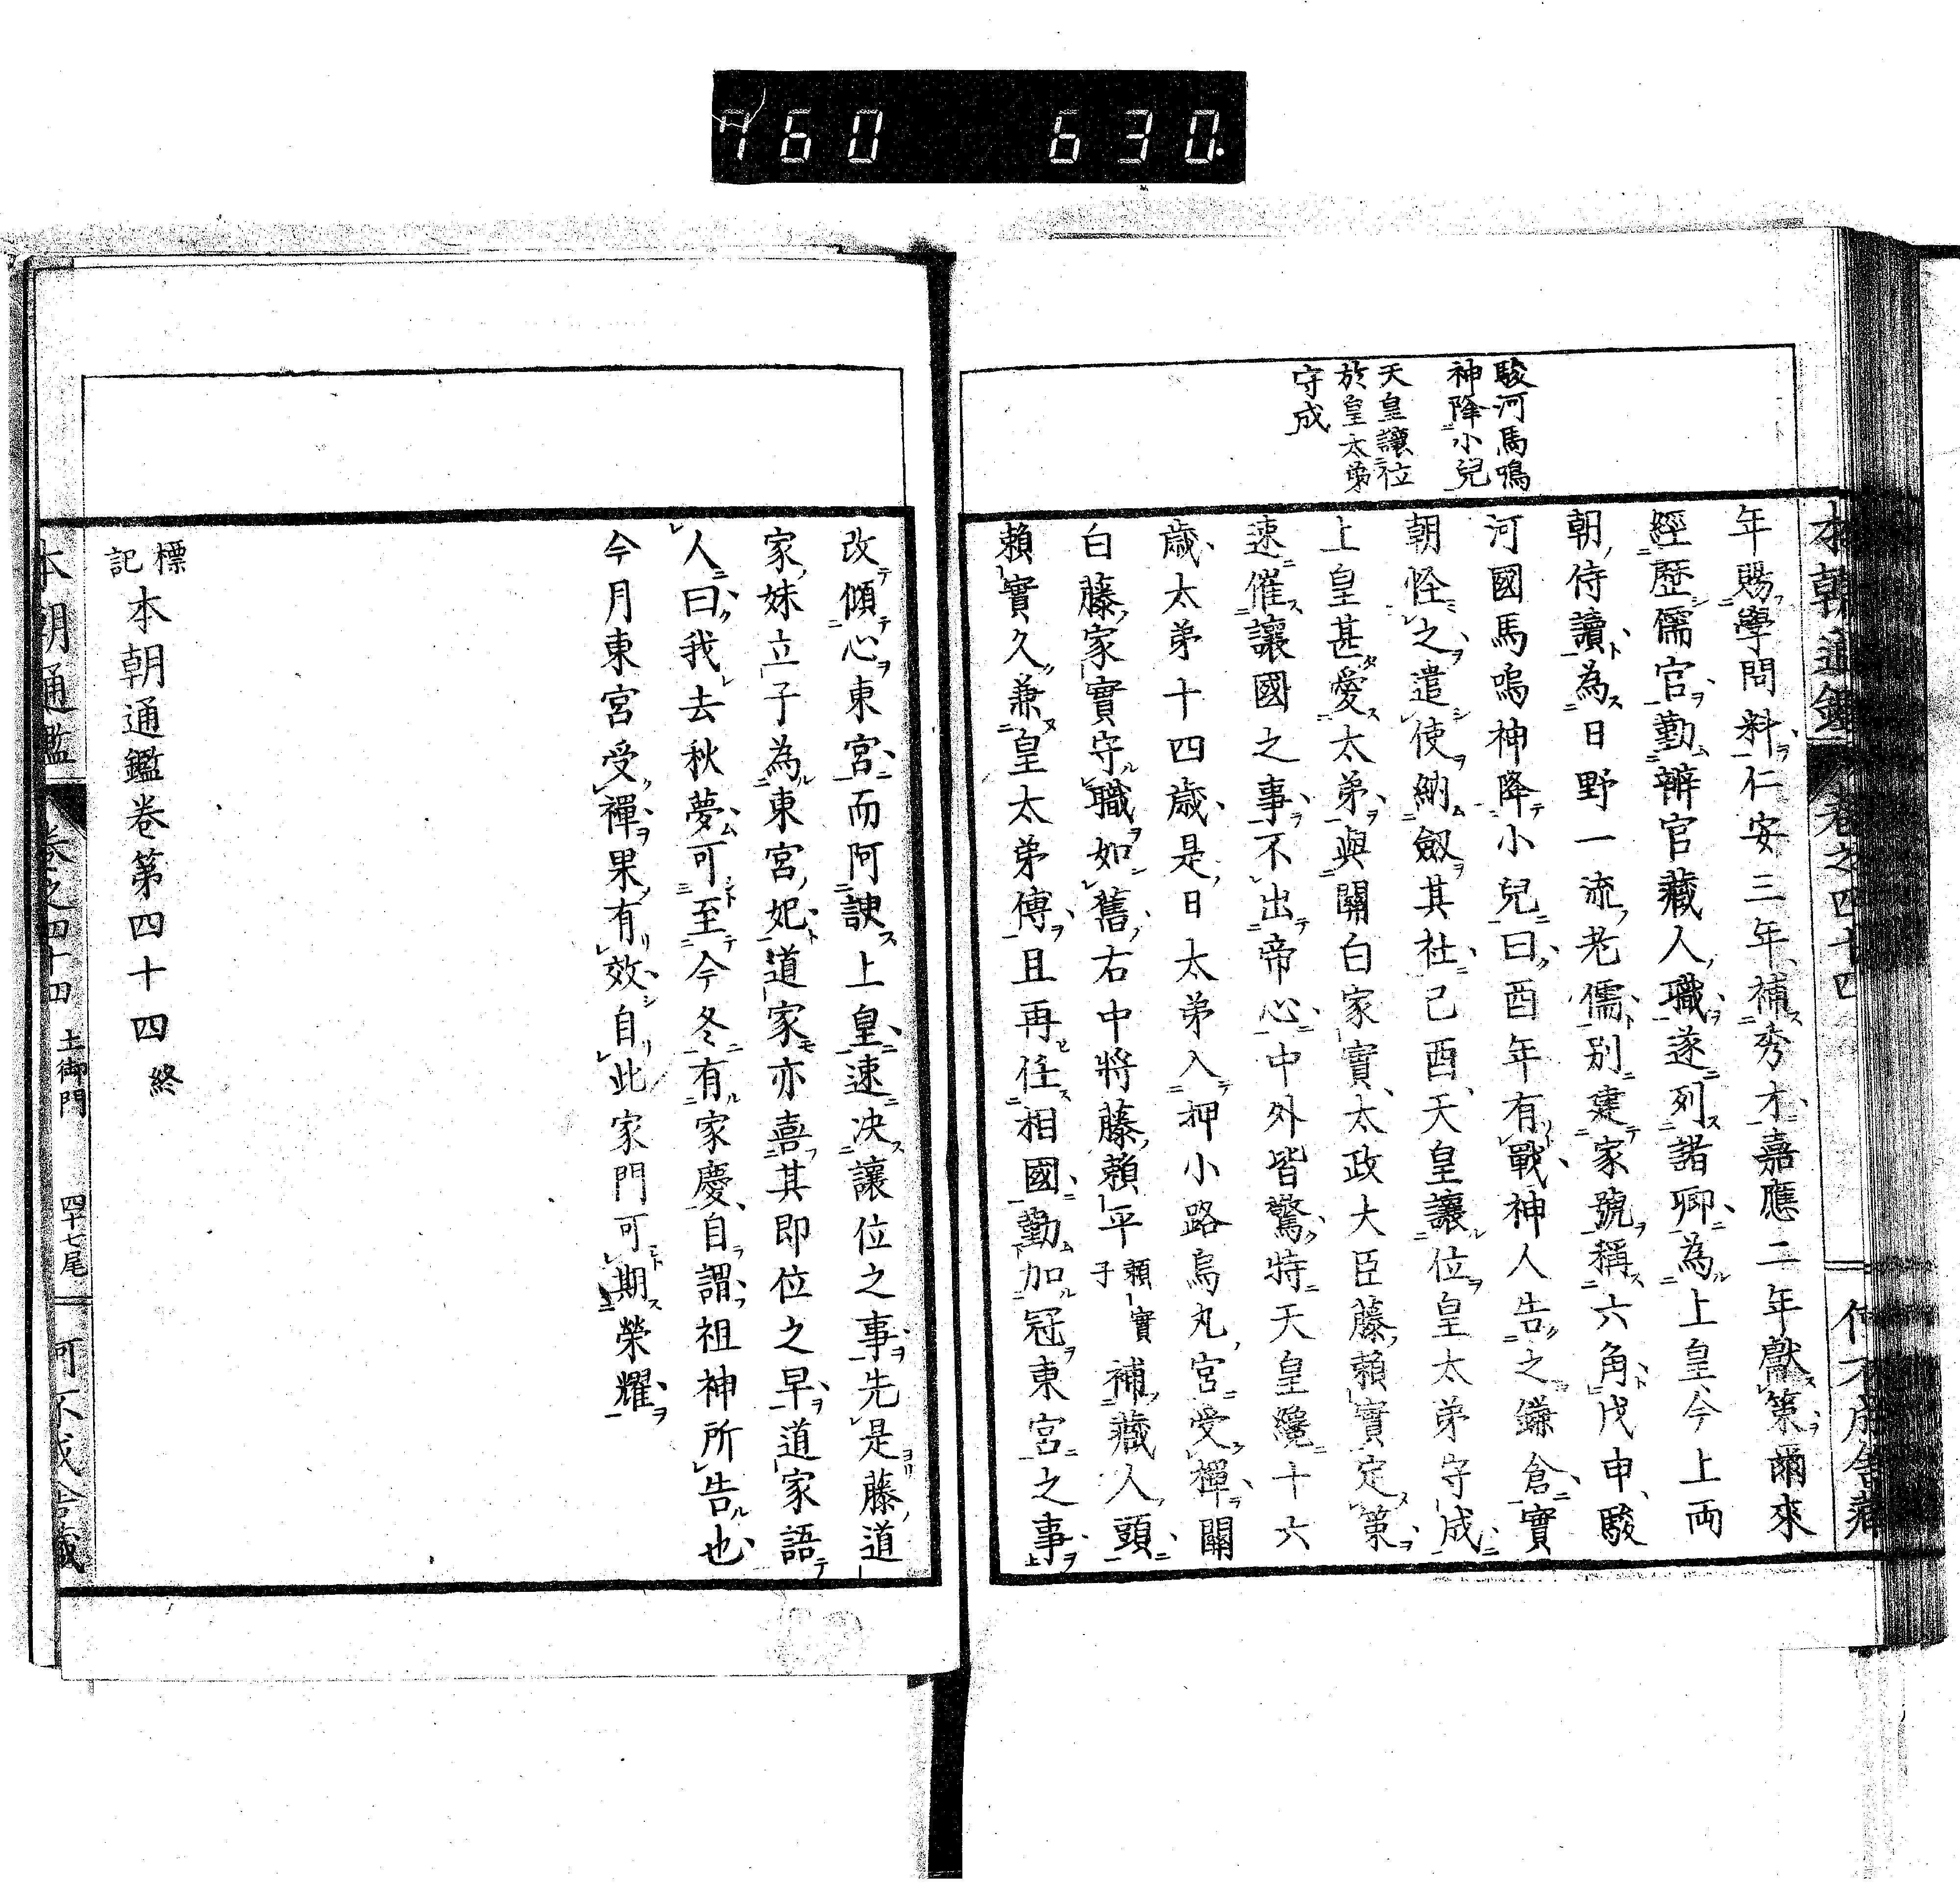 760 630.
本朝通鑑 卷之四十四
駿河馬鳴
神降小兒
天皇讓位
於皇太弟
守成
年賜學問料仁安三年補秀才嘉應二年獻策爾來
經歷儒官勤辨官藏人職遂列諸卿為上皇今上兩
朝侍讀為日野一流老儒別建家號稱六角戊申駿
河國馬鳴神降小兒曰酉年有戰神人告之鎌倉實
朝怪之遣使納劔其社己酉天皇讓位皇太弟守成
上皇甚愛太弟與關白家實太政大臣藤賴實定策
速催讓國之事不出帝心中外皆驚特天皇纔十六
歲太弟十四歲是日太弟入押小路烏丸宮受禪關
白藤家實守職如舊右中將藤賴平 賴實子 補藏人頭
賴實久兼皇太弟傅且再任相國勤加冠東宮之事
改傾心東宮而阿諛上皇速決讓位之事先是藤道
家妹立子為東宮妃道家亦喜其即位之早道家語
人曰我去秋夢可至今冬有家慶自謂祖神所告也
今月東宮受禪果有效自此家門可期榮耀
標記 本朝通鑑卷第四十四 終
本朝通鑑 卷之四十四 土御門 四十七尾 何不成舍藏